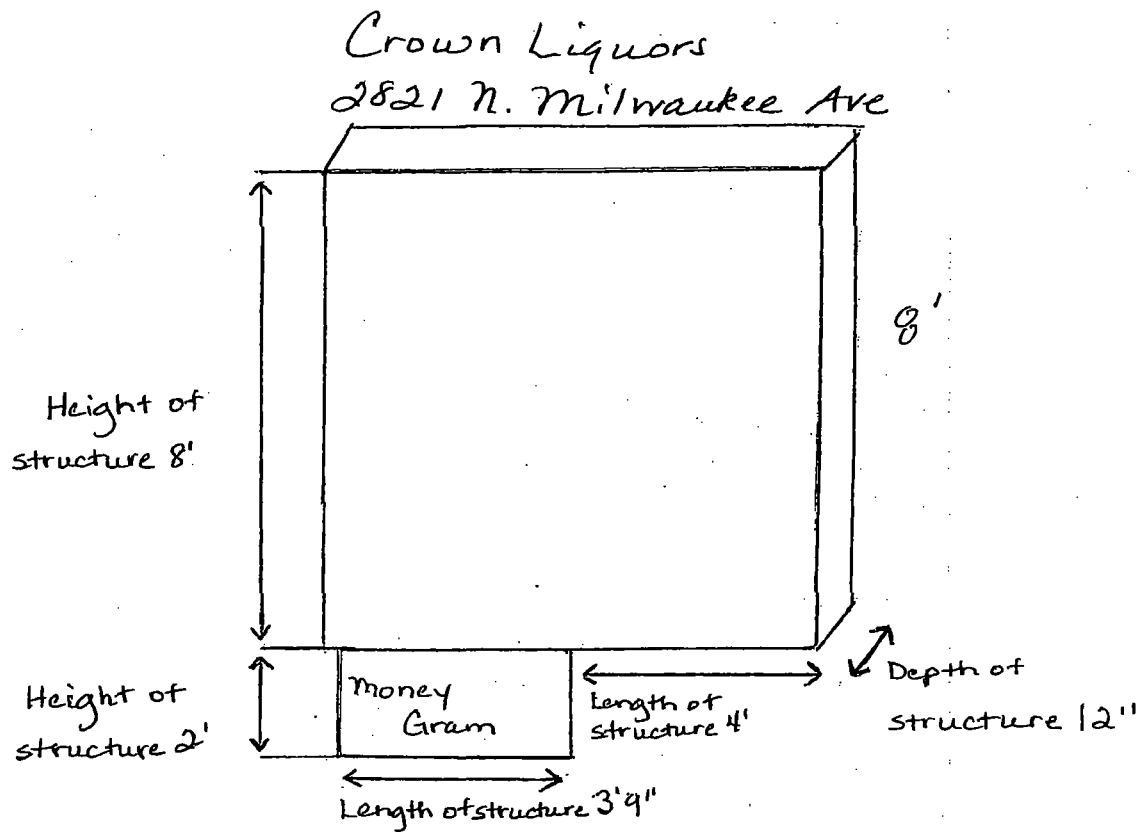 Crown Liquors
2821 N. Milwaukee Ave
8'
Height of
structure 8'
Height of
structure 2'
Money
Gram
Length of
structure 4'
Depth of
structure 12"
Length of structure 3'9"